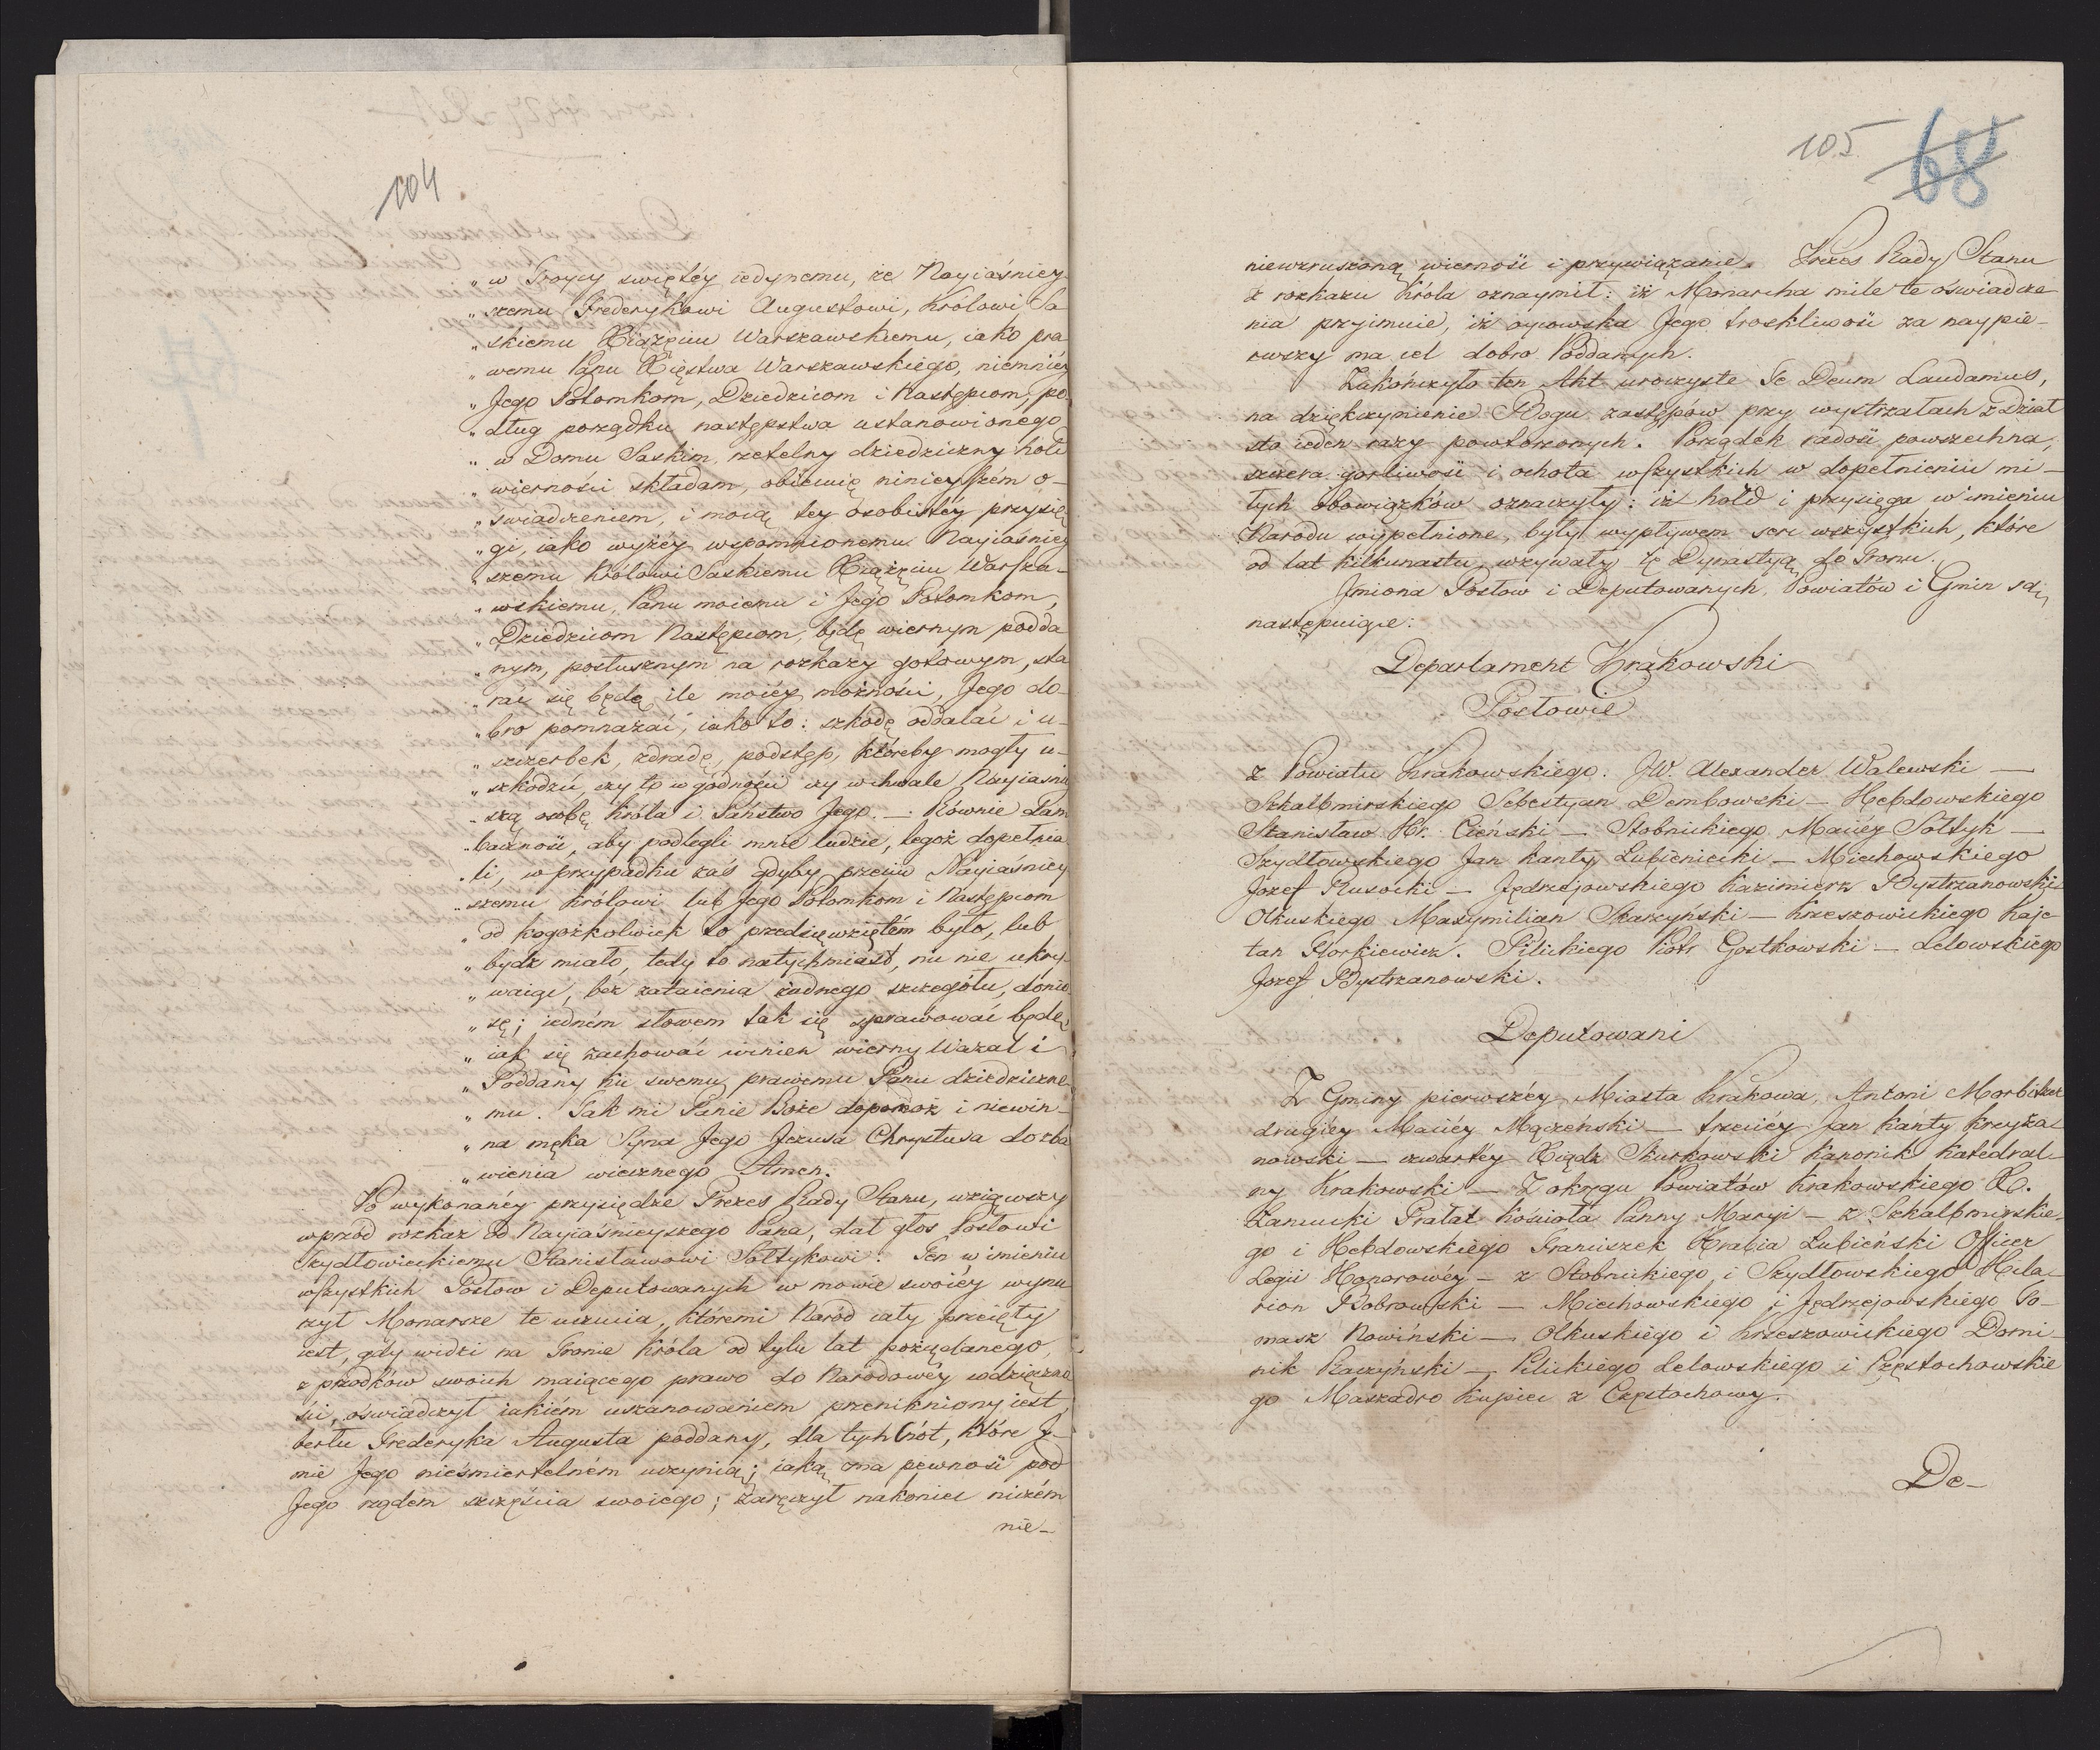 104
„ w Troycy świętéy iedynemu, że Nayiaśniey-
„ szemu Frederykowi Augustowi, Królowi Sa-
„ skiemu Xiążęciu Warszawskiemu, iako pra-
„ wemu Panu Xięstwa Warszawskiego, niemniéy
„ Jego Potomkom, Dziedzicom i Następcom, po-
„ dług porządku następstwa ustanowionego
„ w Domu Saskim, rzetelny dziedziczny hołd
„ wierności składam, obiecuię ninieyszém o-
„ świadczeniem, i mocą tey osobistéy przysię
„ gi, iako wyżéy wspomnionemu Nayiaśniey
„ szemu Królowi Saskiemu Xiążęciu Warsza-
„ wskiemu, Panu moiemu i Jego Potomkom,
„ Dziedzicom Następcom, będę wiernym podda
„ nym, posłusznym na rozkazy gotowym, sta
„ rać się będę ile moiéy możności, Jego do-
„ bro pomnażać, iako to: szkodę oddalać i u-
„ szczerbek, zdradę, podstęp, któreby mogły u-
„ szkodzić, czy to w godności czy w chwale Nayiaśniey
„ szą osobę Króla i Państwo Jego. — Równie dam
„ baczność, aby podlegli mnie ludzie, tegoż dopełnia
„ li, w przypadku zaś gdyby przeciw Nayiaśniey
„ szemu Królowi lub Jego Potomkom i Następcom
„ od kogożkolwiek to przedsięwziętém było, lub
„ bydź miało, tedy to natychmiast, nic nie ukry-
„ waiąc, bez zataienia żadnego szczegółu, donio
„ sę; iedném słowem tak się sprawować będę,
„ iak się zachować winien wierny Wazal i
„ Poddany ku swemu prawemu Panu dziedziczne-
„ mu. Tak mi Panie Boże dopomoż i niewin-
„ na męka Syna Jego Jezusa Chrystusa do zba
„ wienia wiecznego Amen.
Po wykonanéy przysiędze Prezes Rady Stanu, wziąwszy
wprzód rozkaz od Nayiaśnieyszego Pana, dał głos Posłowi
Szydłowieckiemu Stanisławowi Sołtykowi: Ten w imieniu
wszystkich Posłow i Deputowanych w mowie swoiéy wynu
rzył Monarsze te uczucia, któremi Naród cały przeięty
iest, gdy widzi na Tronie Króla od tylu lat pożądanego,
z przodków swoich maiącego prawo do Narodowéy wdzięczno
ści, oświadczył iakiém uszanowaniem przenikniony iest,
berłu Frederyka Augusta poddany, dla tych Cnót, które J-
mie Jego nieśmiertelném uczynią; iaką ma pewność pod
Jego rządem szczęścia swoiego; zaręczył nakoniec niczém
nie-
105 68
niewzruszoną wierność i przywiązanie. Prezes Rady Stanu
z rozkazu Króla oznaymił: iż Monarcha mile te oświadcze
nia przyimuie, iż oycowska Jego troskliwość za naypie-
rwszy ma cel dobro Poddanych.
Zakończyło ten Akt uroczyste Te Deum Laudamus,
na dziękczynienie Bogu zastępów przy wystrzałach z Dział
sto ieden razy powtorzonych. Porządek radość powszechna,
szczera gorliwość i ochota wszystkich w dopełnieniu mi-
łych obowiązków oznaczyły: iż hołd i przysięga w imieniu
Narodu wypełnione, były wypływem serc wszystkich, które
od lat kilkunastu, wzywały tę Dynastyą do Tronu.
Jmiona Posłow i Deputowanych, Powiatów i Gmin są
następuiące:
Departament Krakowski
Posłowie
z Powiatu Krakowskiego. JW. Alexander Walewski —
Szkalbmirskiego Sebestyan Dembowski — Hebdowskiego
Stanisław Hr. Cieński — Stobnickiego Maciéy Sołtyk —
Szydłowskiego Jan Kanty Lubieniecki — Miechowskiego
Józef Rusocki — Jędrzejowskiego Kazimierz Bystrzanowski
Olkuskiego Maxymilian Skarczyński — Krzeszowickiego Kaje-
tan Florkiewicz. Pilickiego Piotr Gostkowski — Lelowskiego
Jozef Bystrzanowski.
Deputowani
Z Gminy pierwszéy Miasta Krakowa, Antoni Morbitzer
drugiéy Maciéy Mączeński — trzeciéy Jan Kanty Krzyża-
nowski — czwartéy Xiądz Skurkowski Kanonik Katedral-
ny Krakowski — Z okręgu Powiatów Krakowskiego X.
Łancucki Prałat Kościoła Panny Maryi — z Szkalbmirskie-
go i Hebdowskiego Franciszek Hrabia Lubieński Officer
Legii Honorowéy — z Stobnickiego i Szydłowskiego Hila-
rion Bobrowski — Miechowskiego i Jędrzejowskiego To-
masz Nowiński — Olkuskiego i Krzeszowickiego Domi-
nik Raczyński — Pilickiego Lelowskiego i Częstochowskie
go Maszadro Kupiec z Częstochowy.
De-